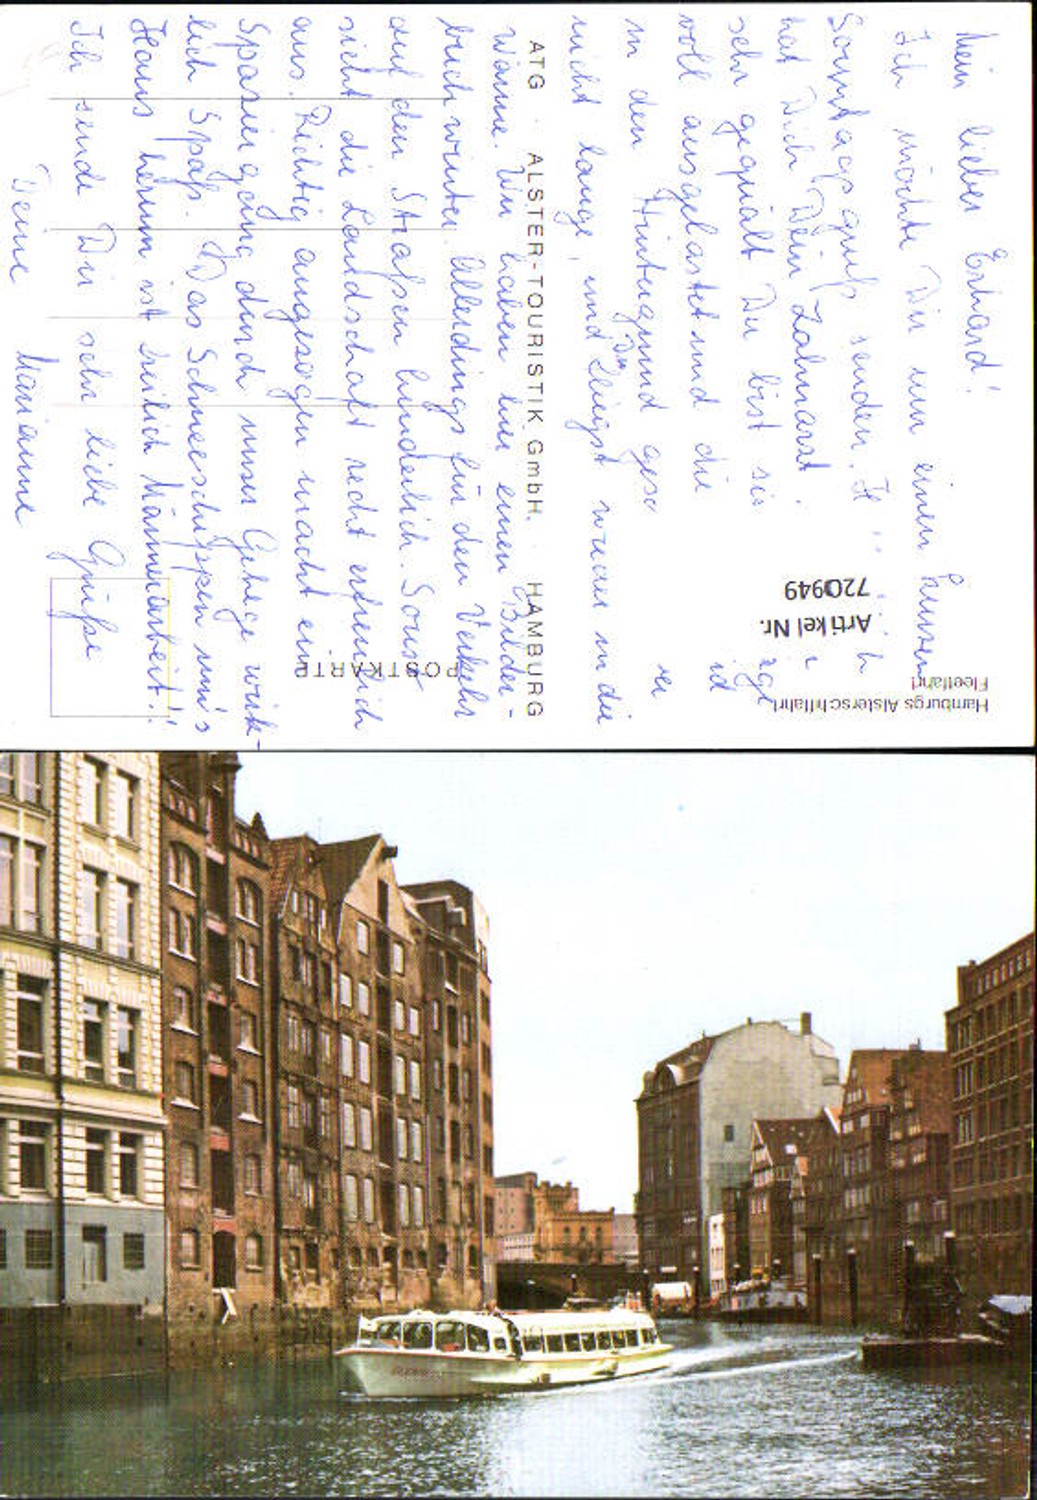 Mein lieber Erhard!
Ich möchte Dir nur einen kurzen
Sonntagsgruß senden. H
hat Dich Dein Zahnarzt
sehr gequält Du bist sie
voll ausgelastet und die
in den Hintergrund gesc
nicht lange, und Du steigst wieder in die
Wanne. Wir haben hier einen Bilder-
buchwinter. Allerdings für den Verkehr
auf den Straßen hinderlich. Sonst
sieht die Landschaft recht erfreulich
aus. Richtig angezogen macht ein
Spaziergang durch unser Gehege wirk-
lich Spaß. Das Schneeschippen um's
Haus herum ist freilich Männerarbeit!!
Ich sende Dir sehr liebe Grüße
Deine Marianne
ATG · ALSTER-TOURISTIK GmbH. · HAMBURG
POSTKARTE
Hamburgs Alsterschiffahrt
Fleetfahrt
Artikel Nr.
720949